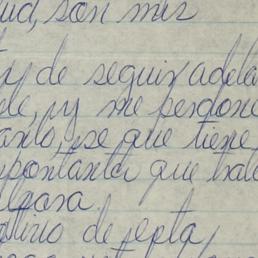 ud, son mis
y de seguir adela
le, y me perdone
anto, se que tiene
mportanta que hate
lpara
stirio de epta,